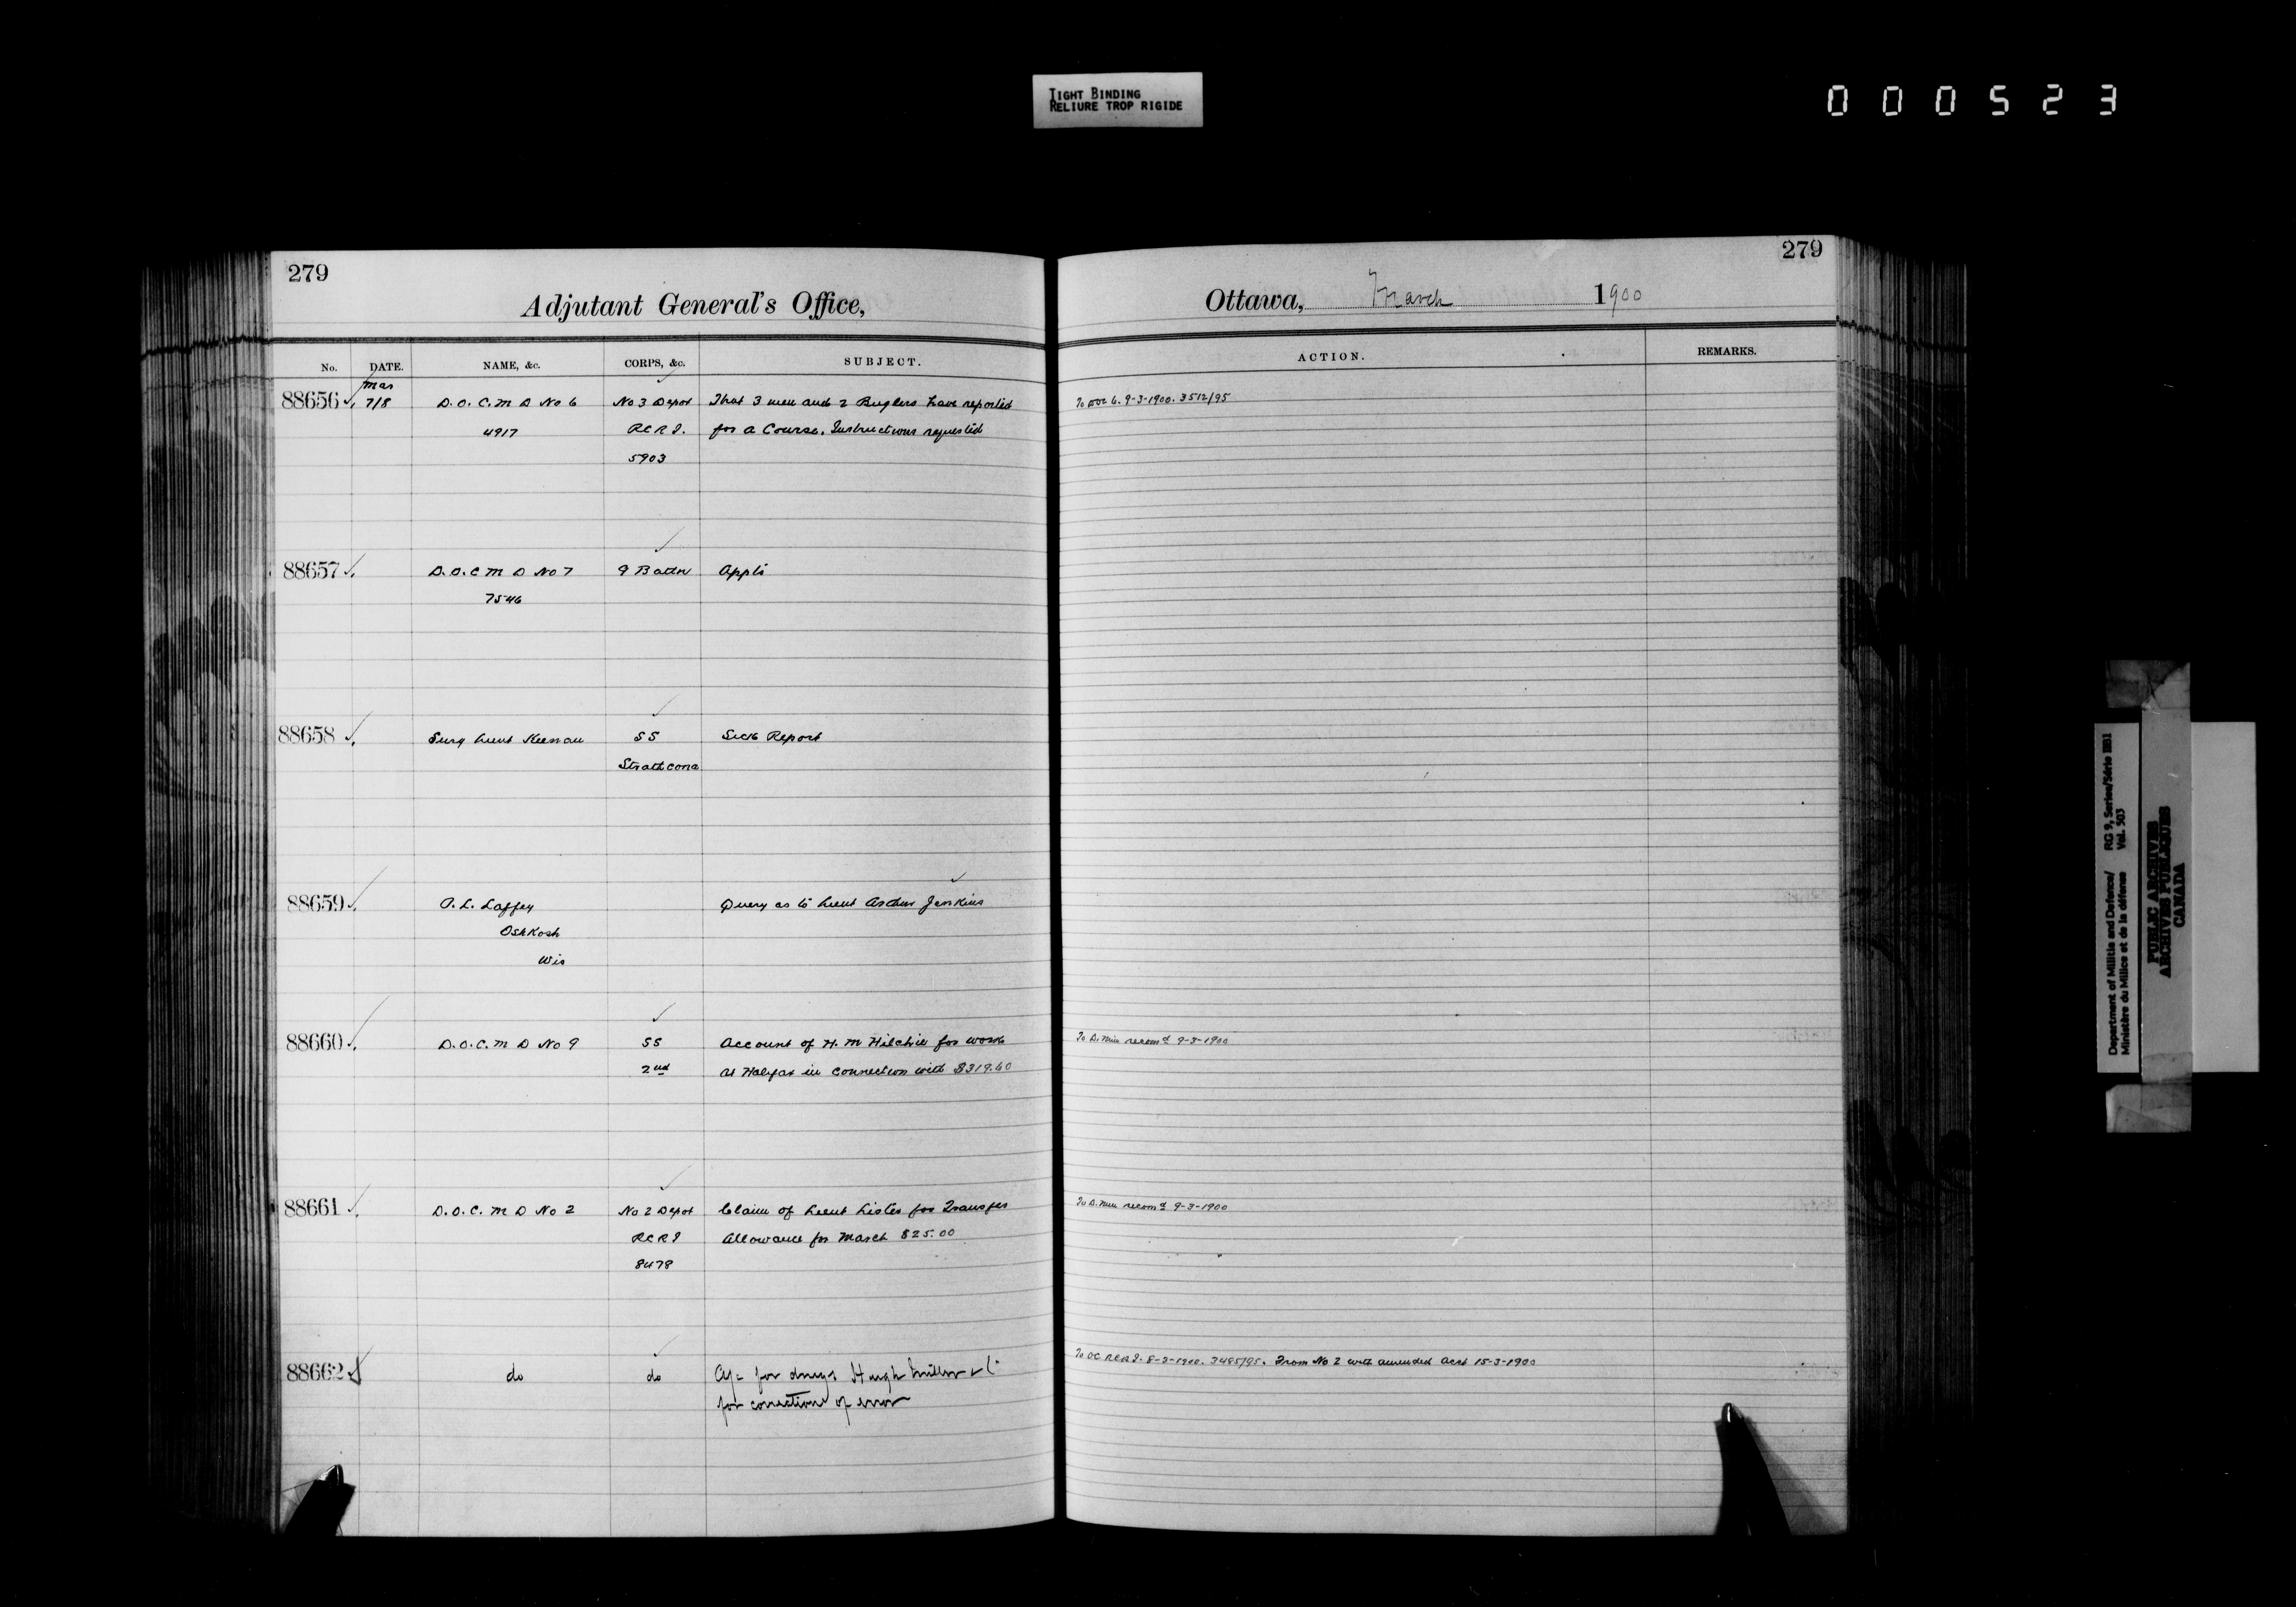 TIGHT BINDING
RELIURE TROP RIGIDE
000523
279
Adjutant General's Office,
No. DATE. NAME, &c. CORPS, &c. SUBJECT.
88656 Mar 7/8 D.O.C. M D No 6 No 3 Depot That 3 men and 2 Buglers have reported
4917 RCRI. for a Course. Instructions requested
5903
88657 D.O.C M D No 7 9 Battn Appli
7546
88658 Surg Lieut Keenan SS Sick Report
Strathcona
88659 P. L. Laffey Query as to Lieut Arthur Jenkins
Oshkosh
Wis
88660 D.O.C. M D No 9 SS Account of H. M Hilchie for work
2nd at Halifax in connection with $319.60
88661 D.O.C. M D No 2 No 2 Depot Claim of Lieut Lister for Transfer
RCRI Allowance for March $25.00
8478
88662 do do for drugs Hugh Miller & C
for correction of error
279
Ottawa, March 1900
ACTION. REMARKS.
To DOC 6. 9-3-1900. 3512/95
To D. Min recomd 9-3-1900
To D. Min recomd 9-3-1900
To OC RCRI. 8-3-1900. 3485/95. From No 2 with amended acct 15-3-1900
Department of Militia and Defence/ RG 9, Series/Série IIB1
Ministère du Milice et de la défense Vol. 503
PUBLIC ARCHIVES
ARCHIVES PUBLIQUES
CANADA